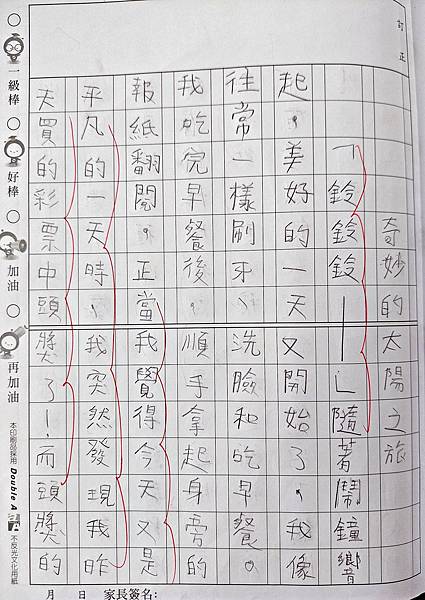 訂正
奇妙的太陽之旅
「鈴鈴鈴——」隨著鬧鐘響
起,美好的一天又開始了,我像
往常一樣刷牙、洗臉和吃早餐。
我吃完早餐後,順手拿起身旁的
報紙翻閱。正當我覺得今天又是
平凡的一天時,我突然發現我昨
天買的彩票中頭獎了!而頭獎的
一級棒
好棒
加油
再加油
本印刷品採用 Double A 不反光文化用紙
月 日 家長簽名: